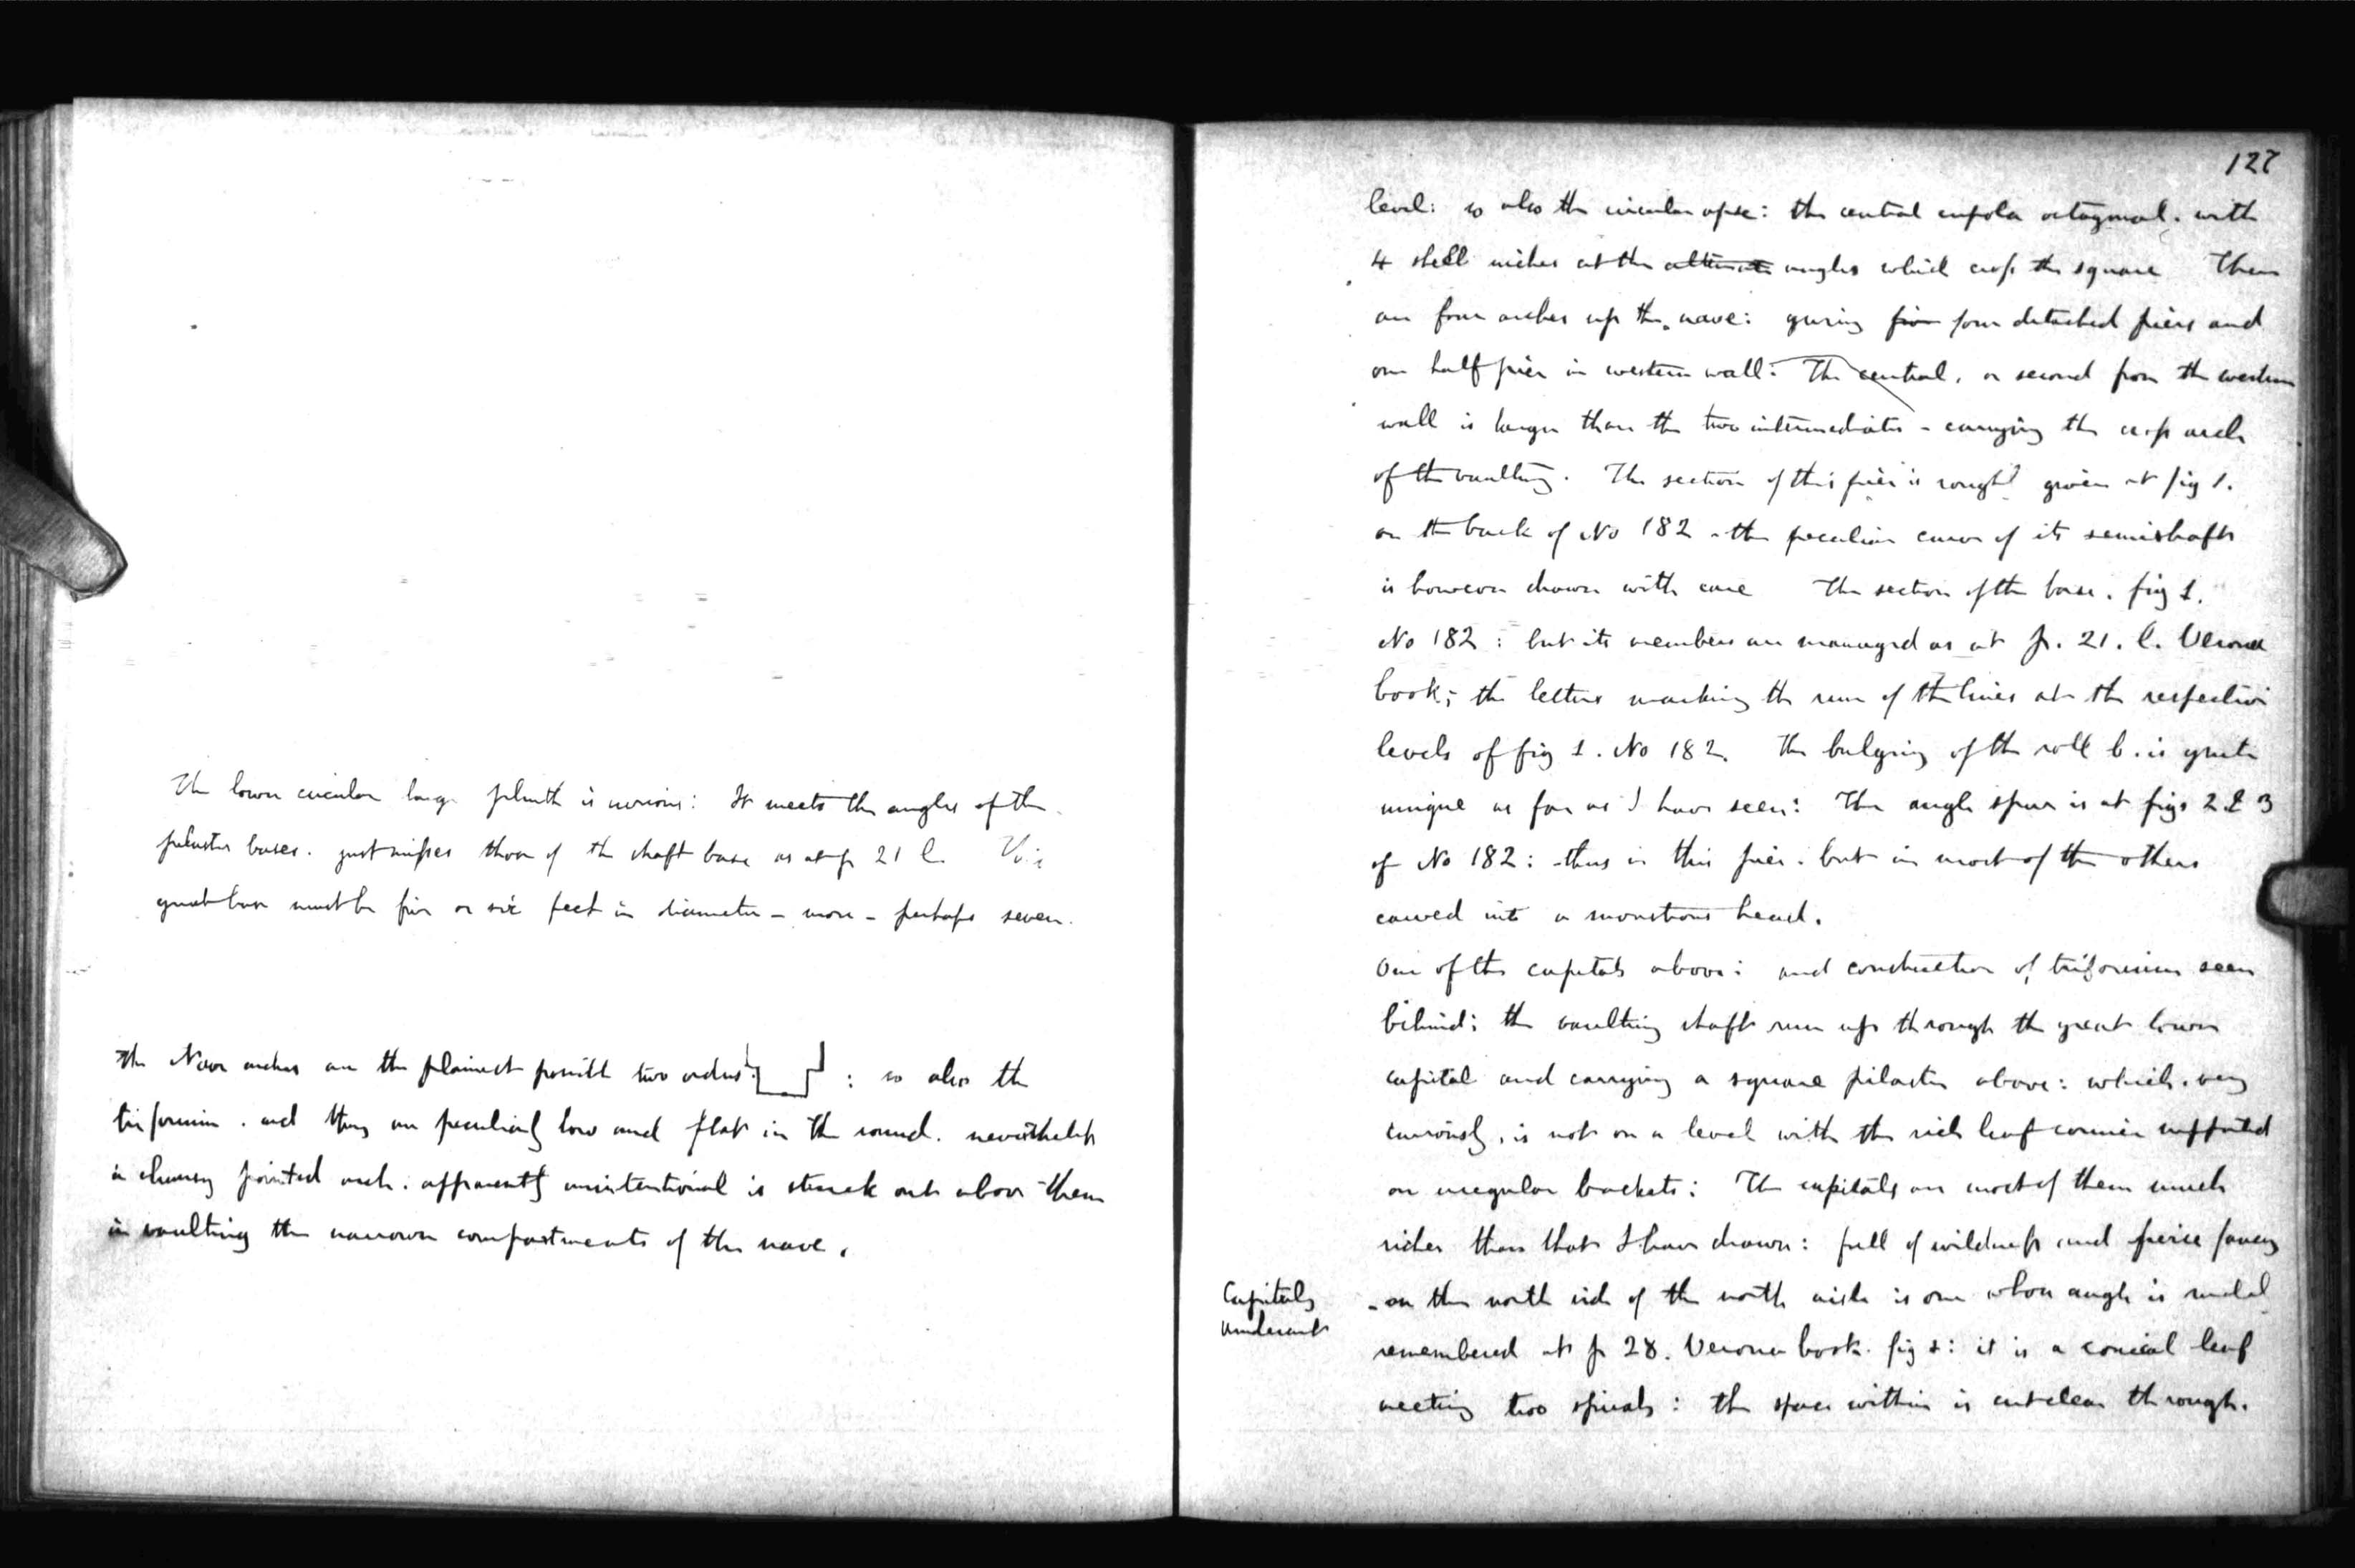 The lower circular large plinth is curious: It meets the angles of the
pilaster bases. just misses those of the shaft base as at p 21 l.
great base must be five or six feet in diameter - more - perhaps seven.
The Nave arches are the plainest possible two orders : so also the
triforium. and they are peculiarly low and flat in the round. nevertheless
a clumsy pointed arch. apparently unintentional is struck out above them
in vaulting the narrow compartments of the nave.
127
level: so also the circular apse: the central cupola octagonal. with
4 shell niches at the alternate angles which cross the square There
are four arches up the nave: giving five four detached piers and
one half pier in western wall: The central, or second from the western
wall is larger than the two intermediates - carrying the cross arch
of the vaulting. The section of this pier is roughly given at fig 1.
on the back of No 182 - the peculiar curve of its semishafts
is however drawn with care The section of the base. fig 1.
No 182 : but its members are managed as at p. 21. l. Verona
book; the letters marking the run of the lines at the respective
levels of fig 1. No 182. The bulging of the roll b. is quite
unique as far as I have seen: The angle spur is at figs 2 & 3
of No 182: thus in this pier. but in most of the others
carved into a monstrous head.
One of the capitals above: and construction of triforium seen
behind: the vaulting shaft run up through the great lower
capital and carrying a square pilaster above: which, very
curiously, is not on a level with the rich leaf cornice supported
on irregular brackets: The capitals are most of them much
richer than that I have drawn: full of wildness and fierce fancy
Capitals
undercut
- on the north side of the north aisle is one whose angle is
remembered at p 28. Verona book. fig 1: it is a conical leaf
meeting two spirals: the space within is cut clear through.